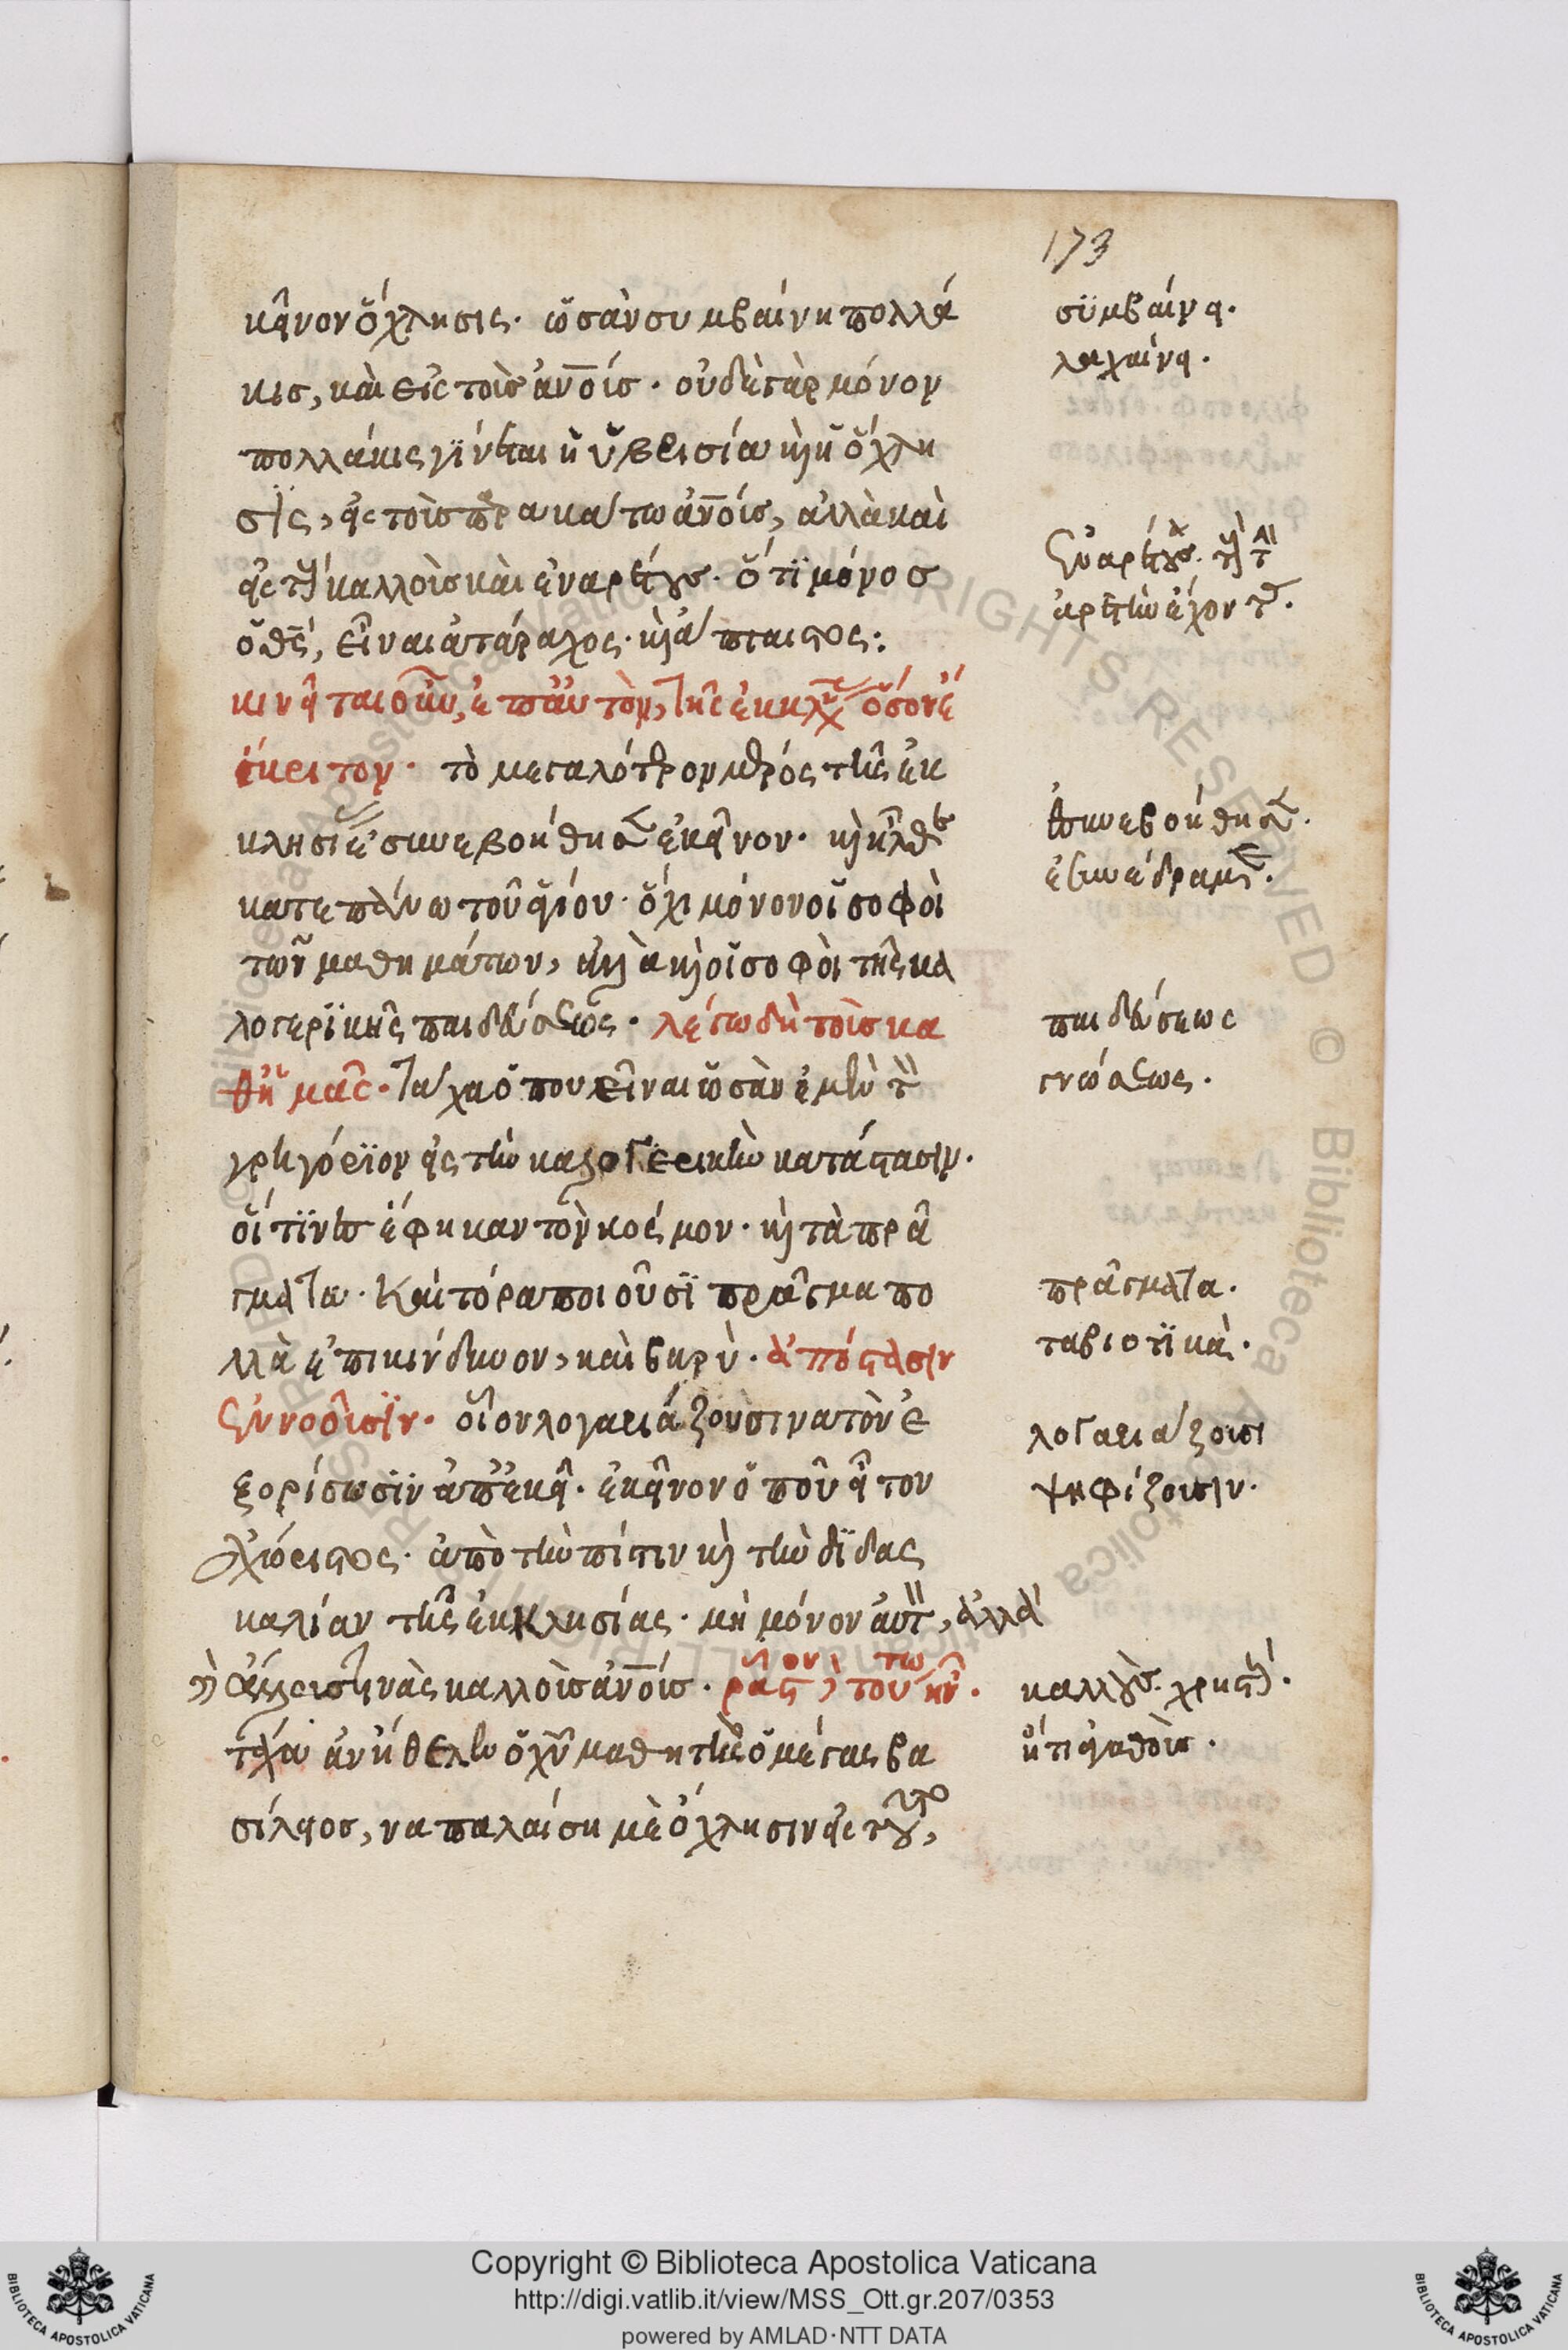 173
κεῖνον ὄχλησις. ὡσὰν συμβαίνη πολλά
κις, καὶ εἰς τοὺς ἀνο̅ίσ. οὐδὲ γὰρ μόνον
πολλάκις γίνεται ἡ ὕβρις καὶ ἡ ὄχλη
σϊς, εἰς τοὺς ἀνο̅ίσ, ἀλλὰ καὶ
εἰς τοὺς καλλοὺς καὶ ἐναρέτους. ὅτι μόνοσ
ὁ θς̅, εἶναι ἀτάραχος. καὶ ἄπταιστος:
κινεῖται οὖν, ἐπ' αὐτὸν, τῆς ἐκκλ ὅσον ἔ
έκριτον. τὸ μεγαλότερον μέρος τῆς ἐκ
κλησί ἐσυνεβοήθησαν ἐκεῖνον. καὶ ἦλθ
κατεπάνω τοῦ ὄχι μόνον οἱ σοφοὶ
τῶν μαθημάτων, ἀλλὰ καὶ οἱ σοφοὶ τῆς κα
λογερϊκῆς παιδεύσεως. λέγω δὴ τοὺς κα
θ' ἡμᾶς. τάχα ὁποῦ εἶναι ὡσὰν ἐμὲν τὸν
γρηγόριον εἰς τὴν καλογερικὴν κατάστασιν.
οἵτϊνες ἔφηκαν τὸν κόσμον. καὶ τὰ πρά
γματα. Καὶ τόρα ποιοῦσϊ πρᾶγμα πο
λλὰ ἐπικίνδυνον, καὶ βαρύ. ἀπόστασιν
ἐννοοῦσϊν. οἷον λογαριάζουσι να τὸν ἐ
ξορίσωσϊν ἀπ' ἐκεῖ. ἐκεῖνον ὁποῦ εἶ τον
ἀχώριστος. ἀπὸ τὴν πίστιν καὶ τὴν δϊδας
καλίαν τῆς ἐκκλησίας. μὴ μόνον αὐτὸν, ἀλλὰ
καὶ καλλοὺς ἀνο̅ίσ. ῥᾶστον τούτω ἦν.
τάχα ἂν ἤθελεν ὁ μαθητὴς ὁ μέγας βα
σίλειος, να παλαίση μὲ ὄχλησιν εἰς τοῦτο,
σϋμβαίνει.
λαχαίνει.
ἐναρέτους. τοὺς τὴν
ἀρετὴν ἔχοντας.
ἐσυνεβοήθησαν.
ἐσυνέδραμαν.
παιδεύσεως
γνώσεως.
πράγματα.
τα βιοτϊκὰ.
λογαριάζουσι
ψηφίζουσιν.
καλλοὺς. χρηστοὺς.
ἤτι ἀγαθοὺς.
Copyright © Biblioteca Apostolica Vaticana
http://digi.vatlib.it/view/MSS_Ott.gr.207/0353
powered by AMLAD·NTT DATA
BIBLIOTECA APOSTOLICA VATICANA
BIBLIOTECA APOSTOLICA VATICANA